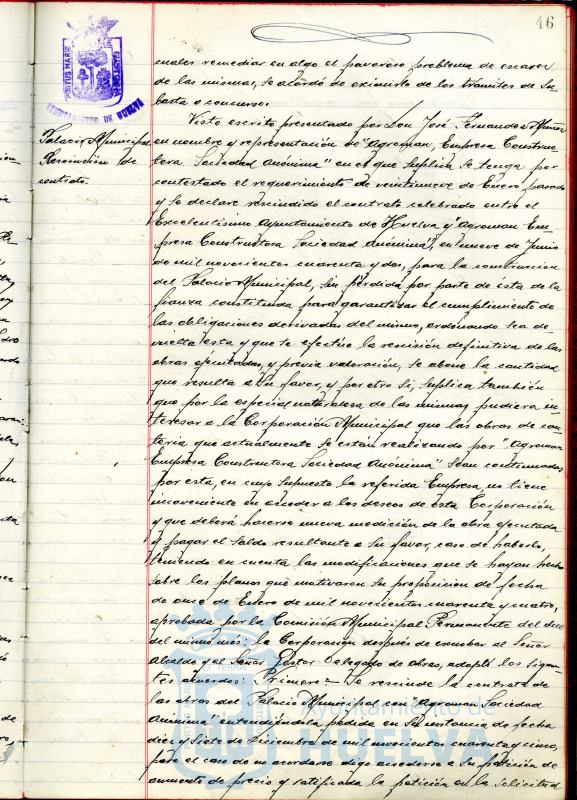 46
PORTUS MARIS
AYUNTAMIENTO DE HUELVA
Palacio Municipal
Rescisión de
contrato.
cuales remediar en algo el pavoroso problema de escasez
de las mismas, se acordó de eximirlo de los trámites de Su-
basta o concurso.
Visto escrito presentado por Don José Fernández Muñoz
en nombre y representación de "Agroman, Empresa Construc-
tora Sociedad Anónima" en el que Suplica se tenga por
contestado el requerimiento de veintinueve de Enero pasado
y se declare rescindido el contrato celebrado entre el
Excelentísimo Ayuntamiento de Huelva y "Agroman Em-
presa Constructora Sociedad Anónima", en nueve de Junio
de mil novecientos cuarenta y dos, para la construcción
del Palacio Municipal, sin pérdida por parte de ésta de la
fianza constituida para garantizar el cumplimiento de
las obligaciones derivadas del mismo, ordenando sea de-
vuelta ésta y que se efectúe la recisión definitiva de las
obras ejecutadas, y previa valoración, se abone la cantidad
que resulta a su favor, y por otro sí, suplica también
que por la especial naturaleza de las mismas pudiera in-
teresar a la Corporación Municipal que las obras de can-
tería que actualmente se están realizando por "Agroman
Empresa Constructora Sociedad Anónima" sean continuadas
por ésta, en cuyo supuesto la referida Empresa, no tiene
inconveniente en acceder a los deseos de esta Corporación
y que deberá hacerse nueva medición de la obra ejecutada
y pagar el saldo resultante a su favor, caso de haberlo,
teniendo en cuenta las modificaciones que se hayan hecho
sobre los planos que motivaron su proposición de fecha
de once de Enero de mil novecientos cuarenta y cuatro,
aprobada por la Comisión Municipal Permanente del doce
del mismo mes; la Corporación después de escuchar al Señor
Alcalde y el Señor Gestor Delegado de obras, adoptó los siguien-
tes acuerdos: Primero = Se rescinde la contrata de
las obras del Palacio Municipal con "Agroman Sociedad
Anónima" entendiéndola pedida en su instancia de fecha
diez y siete de Diciembre de mil novecientos cuarenta y cinco,
para el caso de no acordarse digo accederse a su petición de
aumento de precio y ratificada la petición en la solicitud
Ayuntamiento de
HUELVA